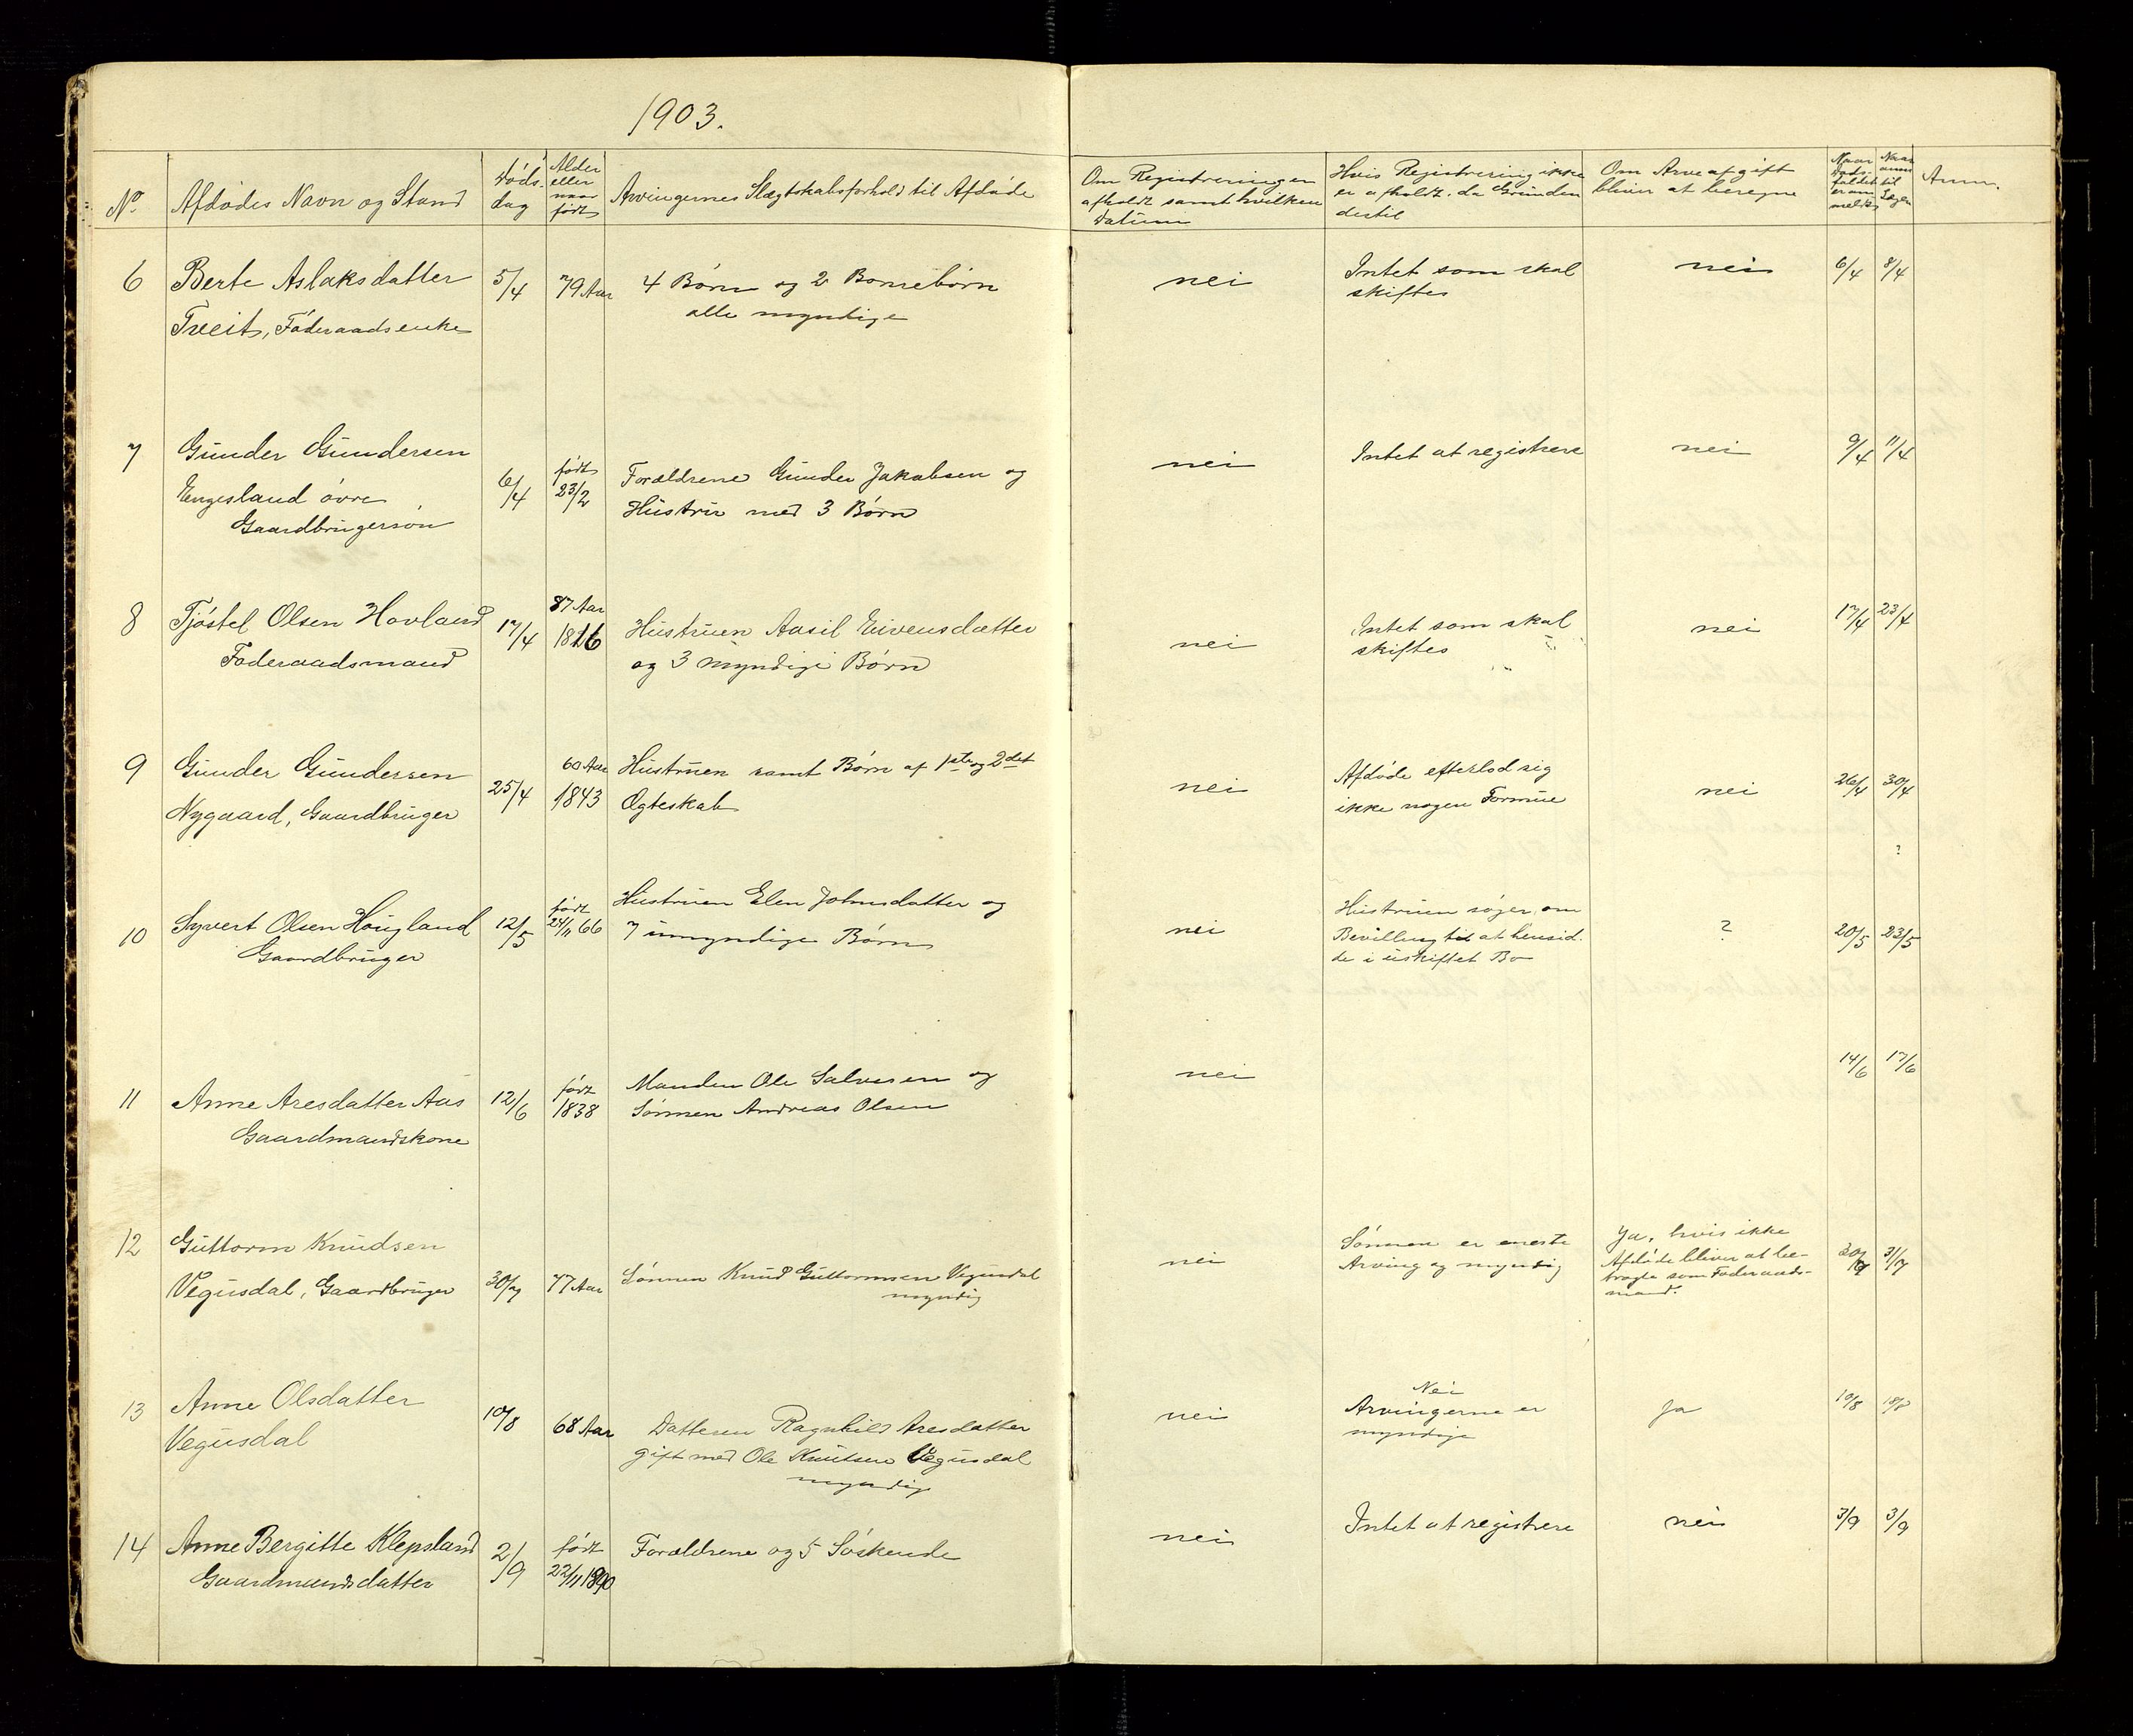 1903.
No. Afdødes Navn og Stand Døds-dag Alder eller naar født Arvingernes Slægtskabsforhold til Afdøde Om Registreringen afholdt samt hvilken Datum Hvis Registrering ikke er afholdt, da Grunden dertil Om Arveafgift bliver at beregne Naar Døds-faldet er an-meldt Naar til Anm.
6 Berte Aslaksdatter 5/4 79 Aar 4 Børn og 2 Børnebørn nei Intet som skal nei 6/4 8/4
Treit, Føderaadsenke alle myndige skiftes
7 Gunder Gundersen 6/4 født Forældrene Gunder Jakobsen og nei Intet at registrere nei 9/4 11/4
Engesland øvre 23/2 Hustru med 3 Børn
Gaardbrugersøn
8 Tjøstel Olsen Hovland 17/4 87 Aar Hustruen Aasil Eivensdatter nei Intet som skal nei 17/4 23/4
Føderaadsmand 1816 og 3 myndige Børn skiftes
9 Gunder Gundersen 25/4 60 Aar Hustruen samt Børn af 1ste og 2det nei Afdøde efterlod sig nei 26/4 30/4
Nygaard, Gaardbruger 1843 Ægteskab ikke nogen Formue
?
10 Syvert Olsen Hougland 12/5 født Hustruen Elen Johnsdatter og nei Hustruen søger om ? 20/5 23/5
Gaardbruger 24/11 66 7 umyndige Børn Bevilling til at hensid-
de i uskiftet Bo
11 Anne Aresdatter Aas 12/6 født Manden Ole Salvesen og nei 14/6 17/6
Gaardmandskone 1838 Sønnen Andreas Olsen
12 Guttorm Knudsen 30/7 77 Aar Sønnen Knud Guttormsen Vegusdal nei Sønnen er eneste Ja, hvis ikke 30/7 31/7
Vegusdal, Gaardbruger myndig Arving og myndig Afdøde bliver at be-
tragte som Føderaads-
mand.
13 Anne Olsdatter 10/8 68 Aar Datteren Ragnhild Aresdatter nei Nei ja 10/8
Vegusdal gift med Ole Knutsen Vegusdal Arvingerne er
myndig myndige
14 Anne Bergitte Klepsland 2/9 født Forældrene og 5 Søskende nei Intet at registrere nei 3/9 3/9
Gaardmandsdatter 22/11 1890